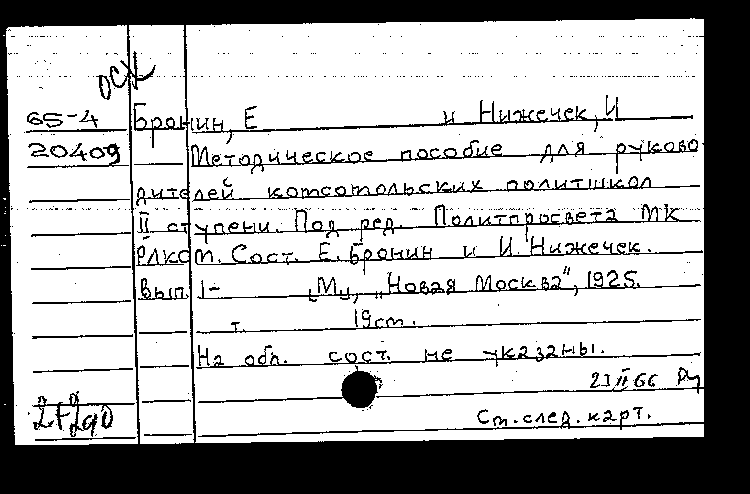 ОСК
65-4 Бронин, Е и Нижечек, И
20409 Методическое пособие для руково
дителей комсомольских политшкол
II ступени. Под ред. Политпросвета МК
РЛКСМ. Сост. Е. Бронин и И. Нижечек.
Вып. 1- [М], „Новая Москва", 1925.
т. 19см.
На обл. сост. не указаны.
23 II 66
См. след. карт.